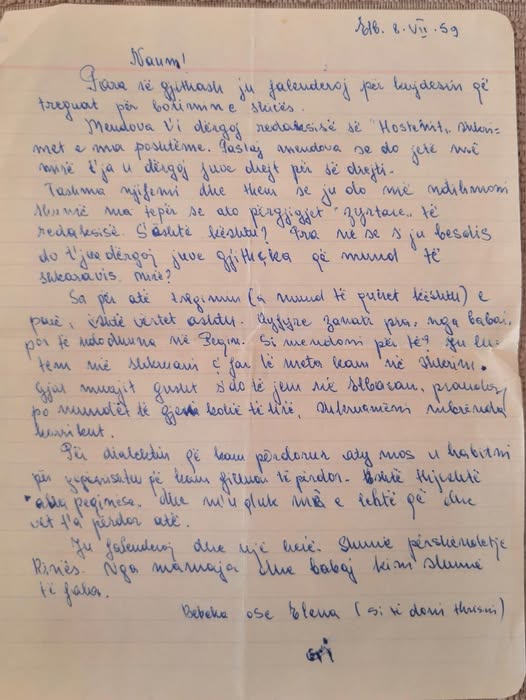 Elb. 8.VII.59
Naum!
Para së gjithash ju falenderoj për kujdesin që
treguat për botimin e skicës.
Mendova t'i dërgoj redaksisë së "Hostenit" shkri-
met e ma poshtëme. Pastaj mendova se do jetë më
mirë t'ja u dërgoj juve drejt për së drejti.
Tashma njifemi dhe them se ju do më ndihmoni
shumë ma tepër se ato përgjigjjet "zyrtare" të
redaksisë. S'është kështu? Pra në se s'ju besdis
do t'jua dërgoj juve gjithçka që mund të
shkaravis. Mirë?
Sa për atë (a mund të quhet kështu) e
parë, është vërtet ashtu. zanati pra, nga babai,
por të ndodhura në Peqin. Si mendoni për të? Ju lu-
tem më shkruani ç'far të meta kam në shkrim.
Gjat muajit gusht s'do të jem në Elbasan, prandaj
po mundët të gjeni kohë të lirë, mbrënda
korrikut.
Për dialektin që kam përdorur aty mos u habitni
për që kam filluar të përdor. Është thjeshtë
"alla peqinëse" dhe m'u duk më e lehtë që dhe
vet t'a përdor atë.
Ju falenderoj dhe një herë. Shumë përshëndetje
Rinës. Nga mamaja dhe babaj kini shumë
të fala.
Bebeka ose Elena (si të doni thirrni)